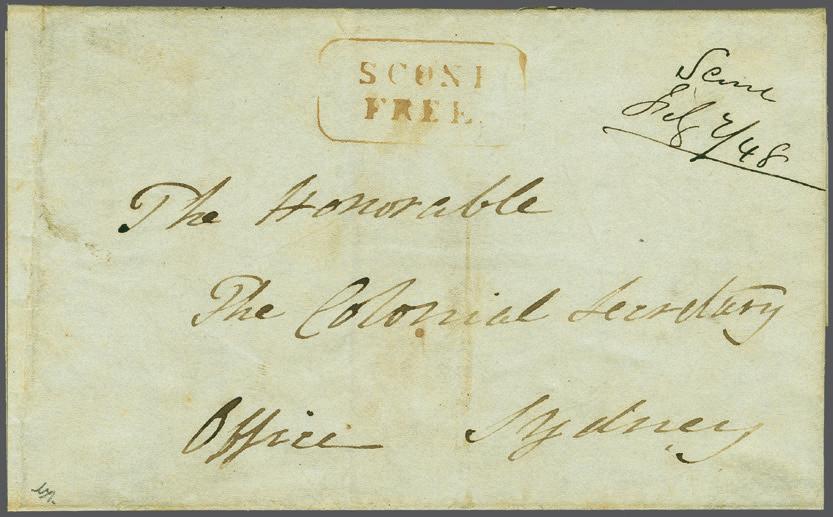 SCONE
FREE
Scone
Feb 7/48
The Honorable
The Colonial Secretary
Office Sydney